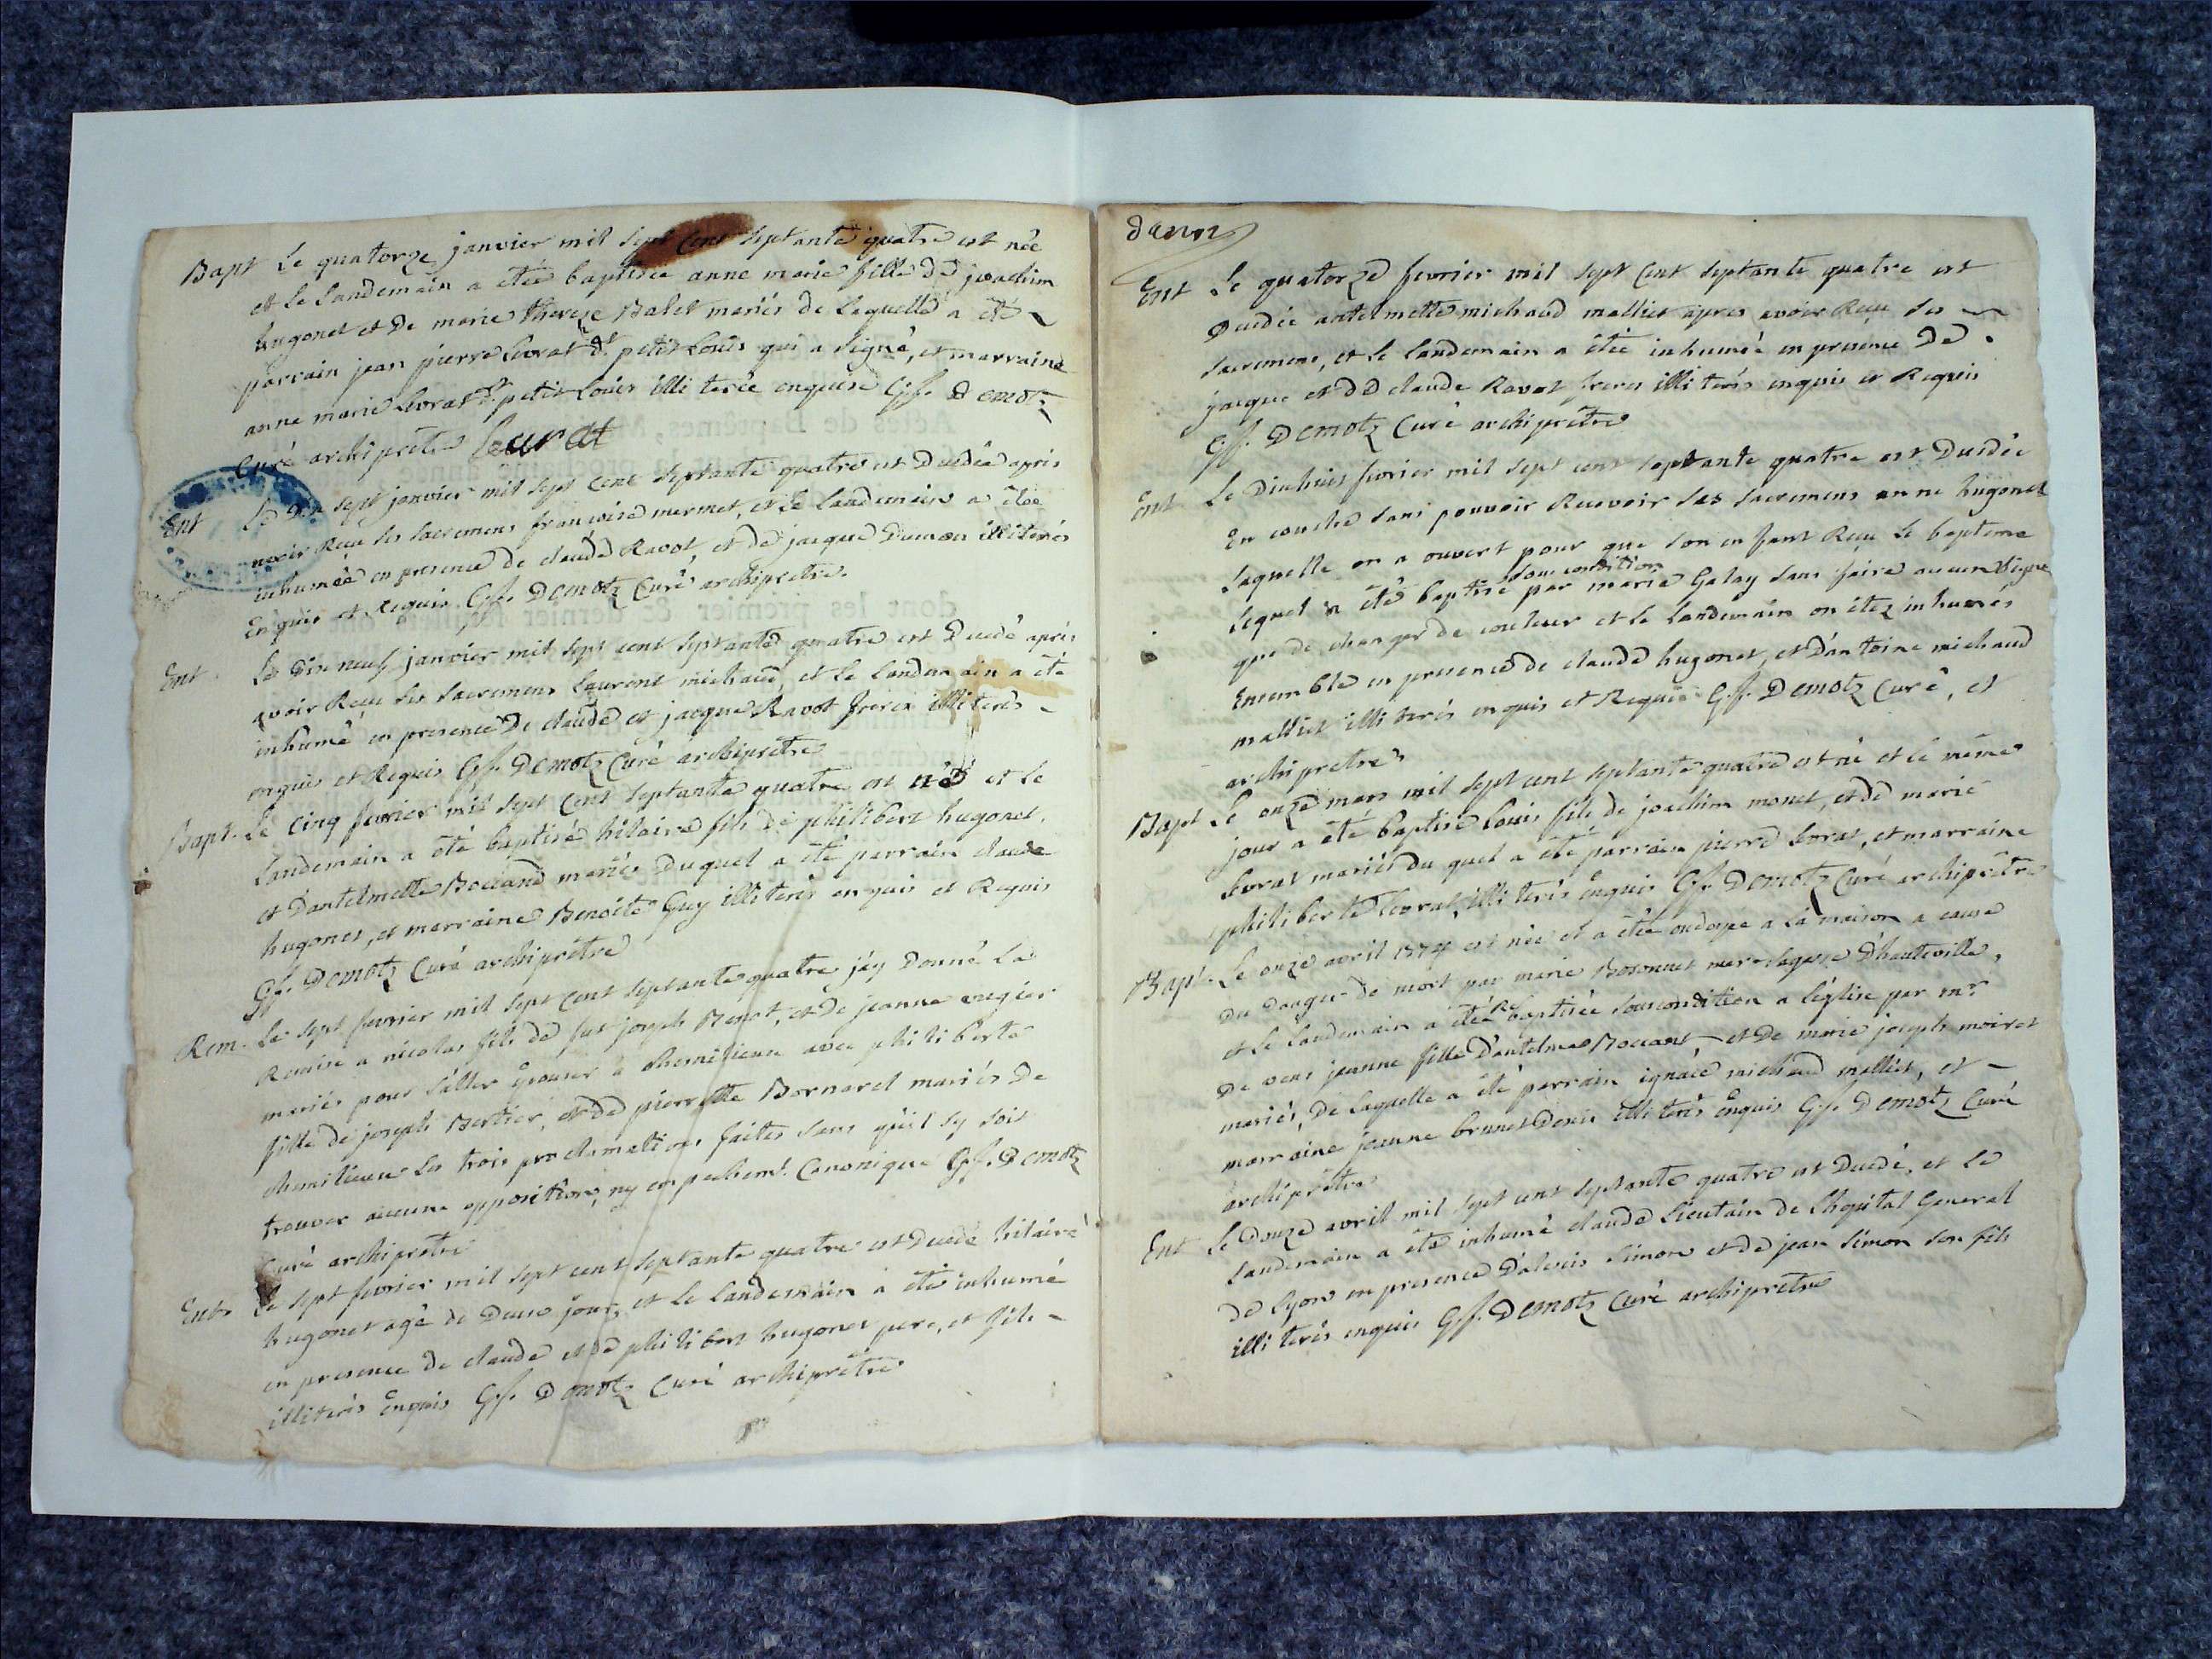 Bapt Le quatorze janvier mil sept cent septante quatre est née
et le landemain a etée baptisée anne marie fille de joachim
hugonet et de marie therese Balet mariés de laquelle a été
parrain jean pierre livrat dt petit Louis qui a signé, et marraine
anne marie livrat dt petit Loüis illiterée enquise Gf. Demotz
Curé archiprêtre Leurat
Ent Le dix sept janvier mil sept cent septante quatre est Decedée après
avoir Reçu ses sacremens françoise mermet, et le landemain a étée
inhumée en presence de claude Ravot, et de jacque Dumon illiterés
Enquis et Requis Gf. Demotz Curé archipretre.
Ent Le dix neuf janvier mil sept cent septante quatre est Decedé après
avoir Reçu ses sacremens laurent michaud, et le landemain a été
inhumé en presence De claude et jacque Ravot freres illiterés
enquis et Requis Gf. Demotz Curé archiprêtre
Bapt. Le cinq fevrier mil sept cent septante quatre est né et le
landemain a été baptisé hilaire fils de philibert hugonet,
et d'antelmette Bocciand mariés Duquel a été parrain claude
hugonet, et marraine Benoite Guy illiterés enquis et Requis
Gf. Demotz Curé archiprêtre
Rem. Le sept fevrier mil sept cent septante quatre j'ay Donné la
Remise a nicolas fils de fut joseph Benot, et de jeanne
mariés pour s'aller Epouser à chemilieux avec philiberte
fille de joseph Bertier, et de pierrette Bornarel mariés De
chemilieux les trois proclamations faites sans qu'il sy soit
trouver aucune opposition, ny empechemt. Canonique Gf. Demotz
Curé archiprêtre
Ent Le sept fevrier mil sept cent septante quatre est Decedé hilaire
hugonet agé de Deux jours et le landemain a été inhumé
en presence de claude et de philibert hugonet pere, et fils
illiterés Enquis Gf. Demotz Curé archiprêtre
Ent Le quatorze fevrier mil sept cent septante quatre est
Decedée antelmette michaud malliet après avoir Reçu ses
sacremens, et le landemain a étée inhumée en presence De
jacque et de claude Ravot freres illiterés enquis et Requis
Gf. Demotz Curé archiprêtre
Ent Le Dixhuit fevrier mil sept cent septante quatre est Decedée
En couche sans pouvoir Recevoir ses sacremens anne hugonet
laquelle on a ouvert pour que son enfant Reçu le bapteme
sous condition
lequel a été baptisé par marie Galay sans faire aucun signe
que de changer de couleur et le landemain on étez inhumés
Ensemble en presence de claude hugonet, et D'antoine michaud
malliet illiterés enquis et Requis Gf. Demotz Curé, et
archipretre
Bapt Le onze mars mil sept cent septante quatre est né et le même
jour a été baptisé Louis fils de joachim monet, et de marie
livrat mariés du quel a été parrain pierre livrat, et marraine
philiberte livrat, illiterés Enquis Gf. Demotz Curé archiprêtre
Bapt. Le onze avril 1774 est née et a étée ondoyée a la maison a cause
Du danger de mort par marie Bosonnet mere sagesse D'hauteville,
et le landemain a étée Rebaptisée souscondition a l'église par mr
De vens jeanne fille D'antelme Bocciand et De marie joseph moiret
mariés, De laquelle a été parrain ignace michaud malliet, et
marraine jeanne brunet Denis illiterés Enquis Gf. Demotz Curé
archiprêtre
Ent Le Douze avril mil sept cent septante quatre est Decedé, et le
landemain a été inhumé claude Lieutain de L'hopital General
de lyon en presence D'alexis Simon et de jean Simon son fils
illiterés enquis Gf. Demotz Curé archiprêtre